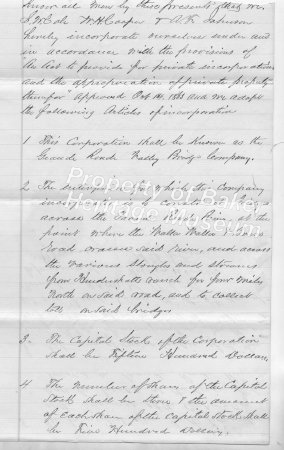 Know all men by these presents that we
J. W. Cole W. H. Cooper & A. R. Johnson
hereby incorporate ourselves under and
in accordance with the provisions of
"An Act to provide for private incorporations
and the appropriation of private property
therefor" Approved Oct 14, 1862 and we adopt
the following Articles of incorporation
1 This Corporation shall be Known as the
Grande Ronde Valley Bridge Company.
2 The enterprise in which this company
is to construct bridges
across the Grande Ronde River, at the
point where the Walla Walla
road crosses said river, and across
the various Sloughs and streams
from ranch for four miles
North on said road, and to collect
tolls on said bridges
3 The Capital Stock of the Corporation
Shall be Fifteen Hundred Dollars
4 The number of shares of the Capital
Stock shall be three & the amount
of each share of the Capital Stock shall
be Five Hundred Dollars.
Property of Baker
Heritage Museum